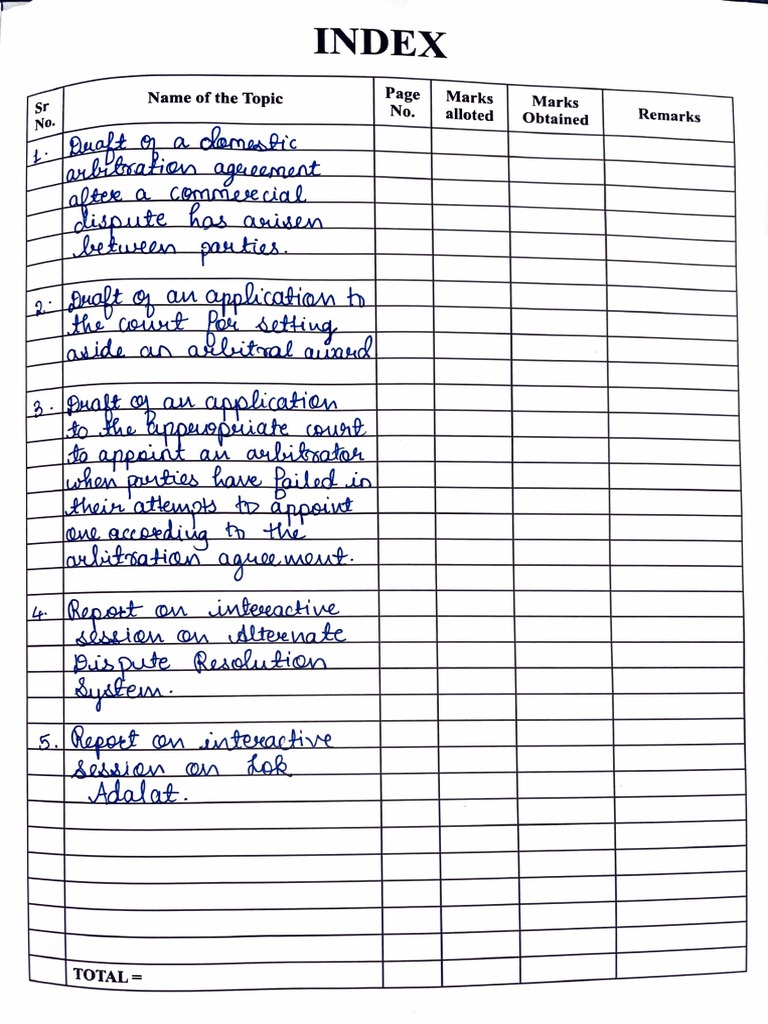 INDEX
Sr No. Name of the Topic Page No. Marks alloted Marks Obtained Remarks
1. Draft of a domestic
arbitration agreement
after a commercial
dispute has arisen
between parties.
2. Draft of an application to
the court for setting
aside an arbitral award
3. Draft of an application
to the appropriate court
to appoint an arbitrator
when parties have failed in
their attempts to appoint
one according to the
arbitration agreement.
4. Report on interactive
session on Alternate
Dispute Resolution
System.
5. Report on interactive
session on Lok
Adalat.
TOTAL =